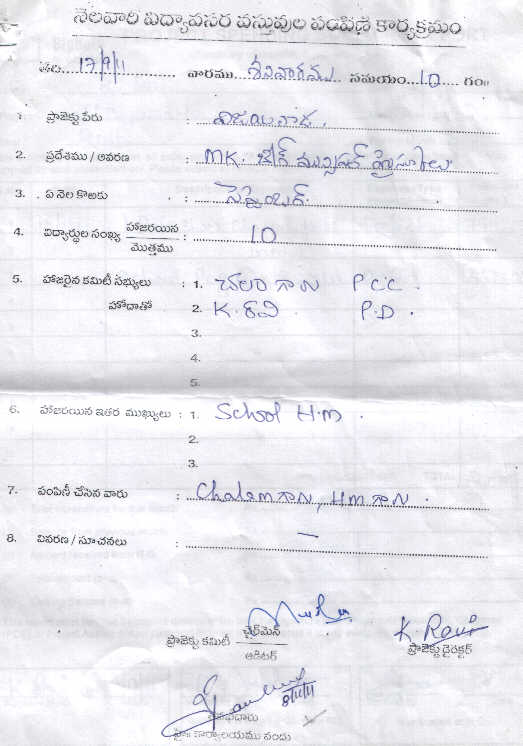 నెలవారి విద్యావసర వస్తువుల పంపిణీ కార్యక్రమం
తేది...17/9/11 వారము...శనివారము సమయం...10.... గం॥
1. ప్రాజెక్టు పేరు : విజయవాడ.
2. ప్రదేశము / ఆవరణ : MK. బేగ్ మున్సిపల్ హైస్కూలు
3. ఏ నెల కొఱకు : సెప్టెంబర్
4. విద్యార్థుల సంఖ్య హాజరయిన / మొత్తము : 10
5. హాజరైన కమిటీ సభ్యులు : 1. చలం గారు P.C.C.
హోదాతో 2. K. రవి P.D.
3.
4.
5.
6. హాజరయిన ఇతర ముఖ్యులు : 1. School H.M.
2.
3.
7. పంపిణీ చేసిన వారు : Chalam గారు, HM గారు.
8. వివరణ / సూచనలు : —
ప్రాజెక్టు కమిటీ ఛైర్‌మెన్ / ఆడిటర్
K. Ravi
ప్రాజెక్టు డైరెక్టర్
8/11/11
కార్యాలయము నందు